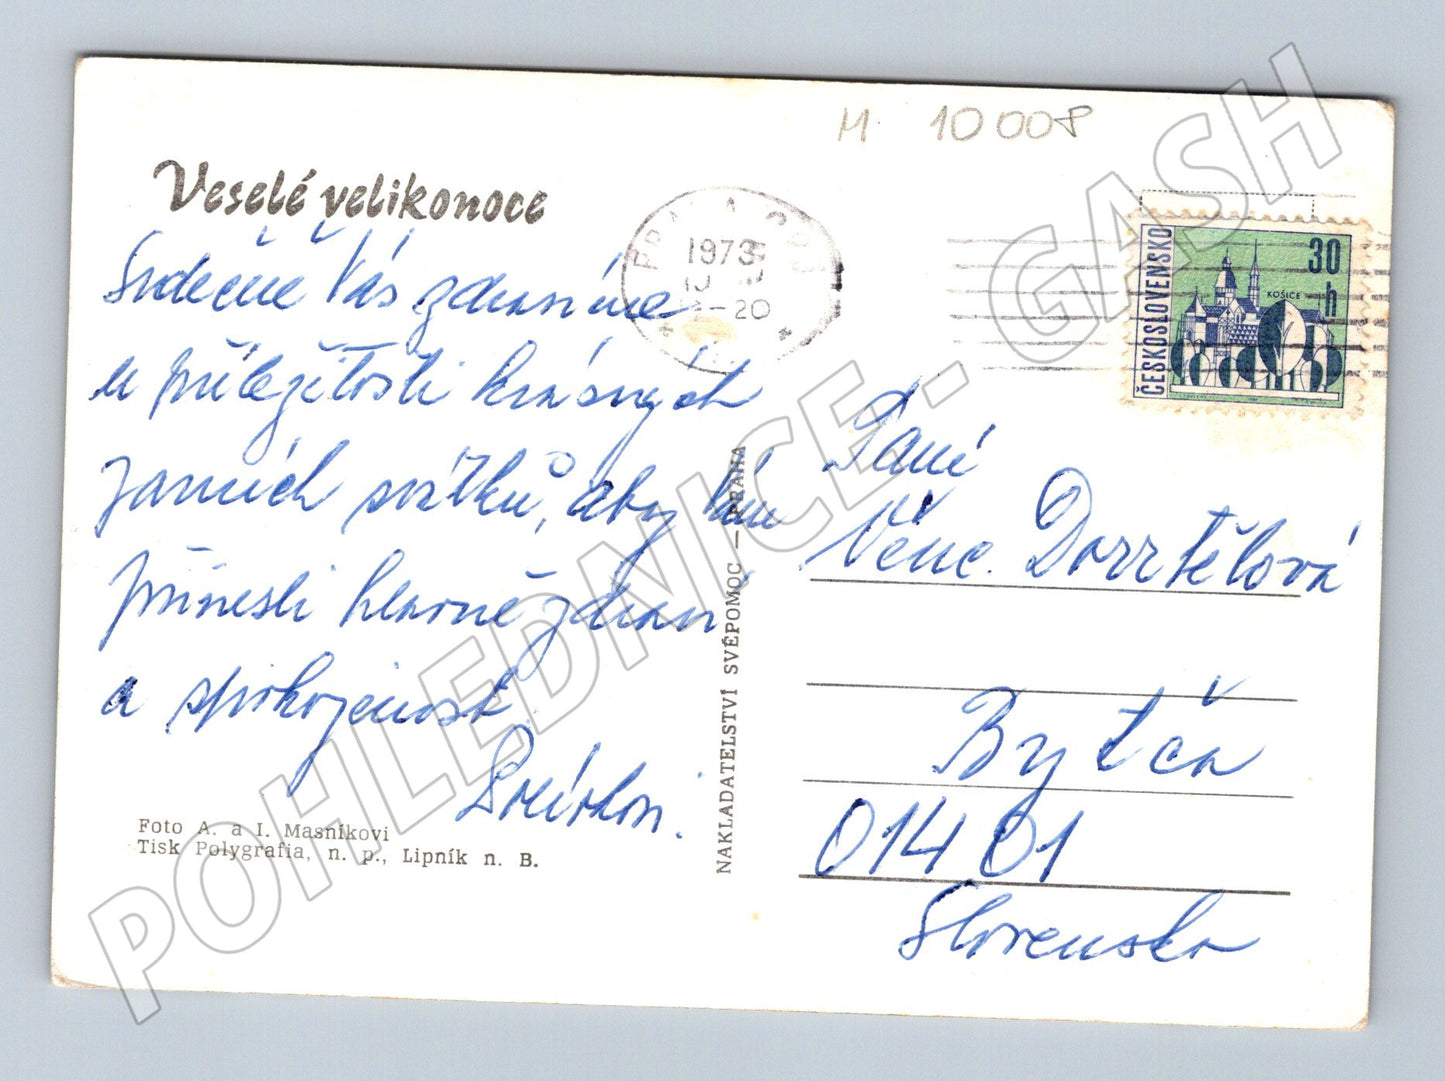 M 10008
Veselé velikonoce
Srdečně Vás zdravíme
u příležitosti krásných
jarních svátků, aby Vám
přinesli hlavně zdraví
a spokojenost
Foto A. a I. Masníkovi
Tisk Polygrafia, n. p., Lipník n. B.
NAKLADATELSTVÍ SVÉPOMOC — PRAHA
1973
-20
ČESKOSLOVENSKO
30
h
KOŠICE
Paní
Věnc.
Bytča
014 01
Slovensko
POHLEDNICE - GASH